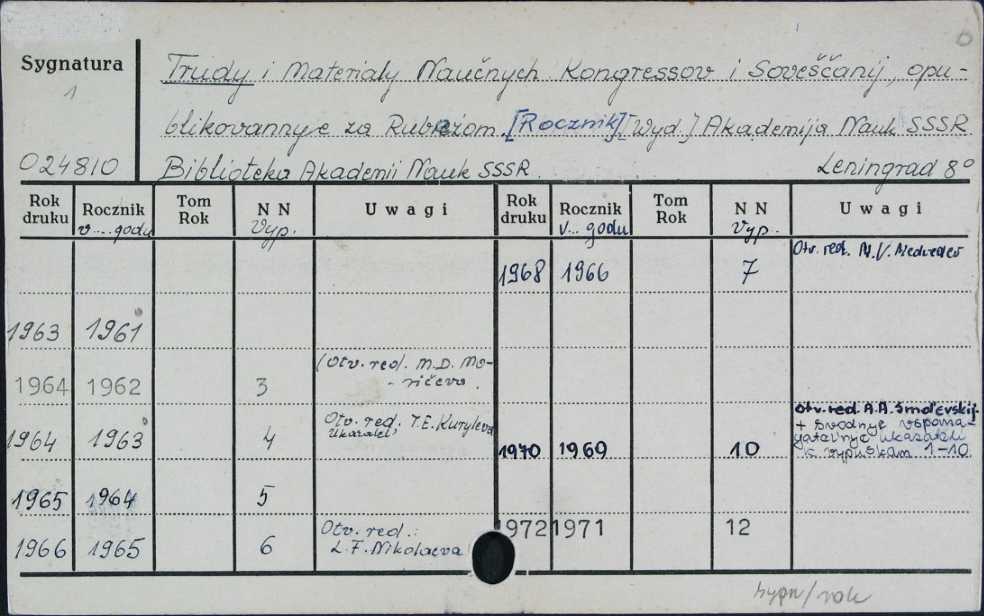 Sygnatura
1
024810
Trudy i Materialy Naučnych Kongressov i Soveščanij, opu-
blikovannye za Rubežom [Rocznik] [Wyd.] Akademija Nauk SSSR
Biblioteka Akademii Nauk SSSR. Leningrad 8°
Rok druku Rocznik v.... godu Tom Rok NN Vyp. Uwagi Rok druku Rocznik v... godu Tom Rok NN Vyp. Uwagi
1968 1966 7 Otv. red. M.V. Medvedev
1963 1961
1964 1962 3 (Otv. red. M.D. Mo-
- ričeva.
1964 1963 4 Otv. red. T.E. Kuryleva
Ukazatel'
1970 1969 10 Otv. red. A.A. Smol'evskij
+ svodnye vspoma-
gatel'nye ukazateli
k vypuskam 1-10
1965 1964 5
1972 1971 12
1966 1965 6 Otv. red.:
L.F. Nikolaeva
/rok